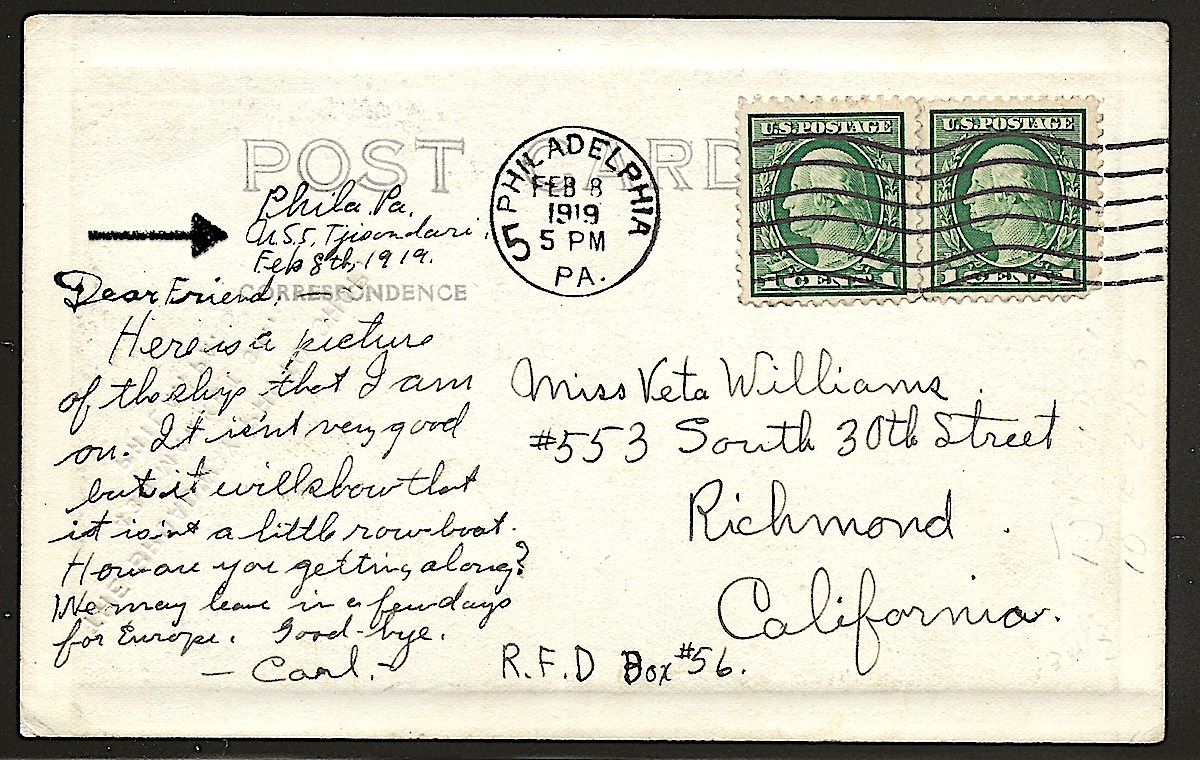 POST CARD
Phila. Pa.
U.S.S. Tjisondari.
Feb 8th, 1919.
CORRESPONDENCE
Dear Friend, —
Here is a picture
of the ship that I am
on. It isn't very good
but it will show that
it isint a little row-boat.
How are you getting along?
We may leave in a few days
for Europe. Good-bye.
— Carl. —
PHILADELPHIA
FEB 8
1919
5 PM
PA.
5
U.S. POSTAGE
1 CENT 1
U.S. POSTAGE
1 CENT 1
Miss Veta Williams.
#553 South 30th Street.
Richmond.
California.
R.F.D Box #56.